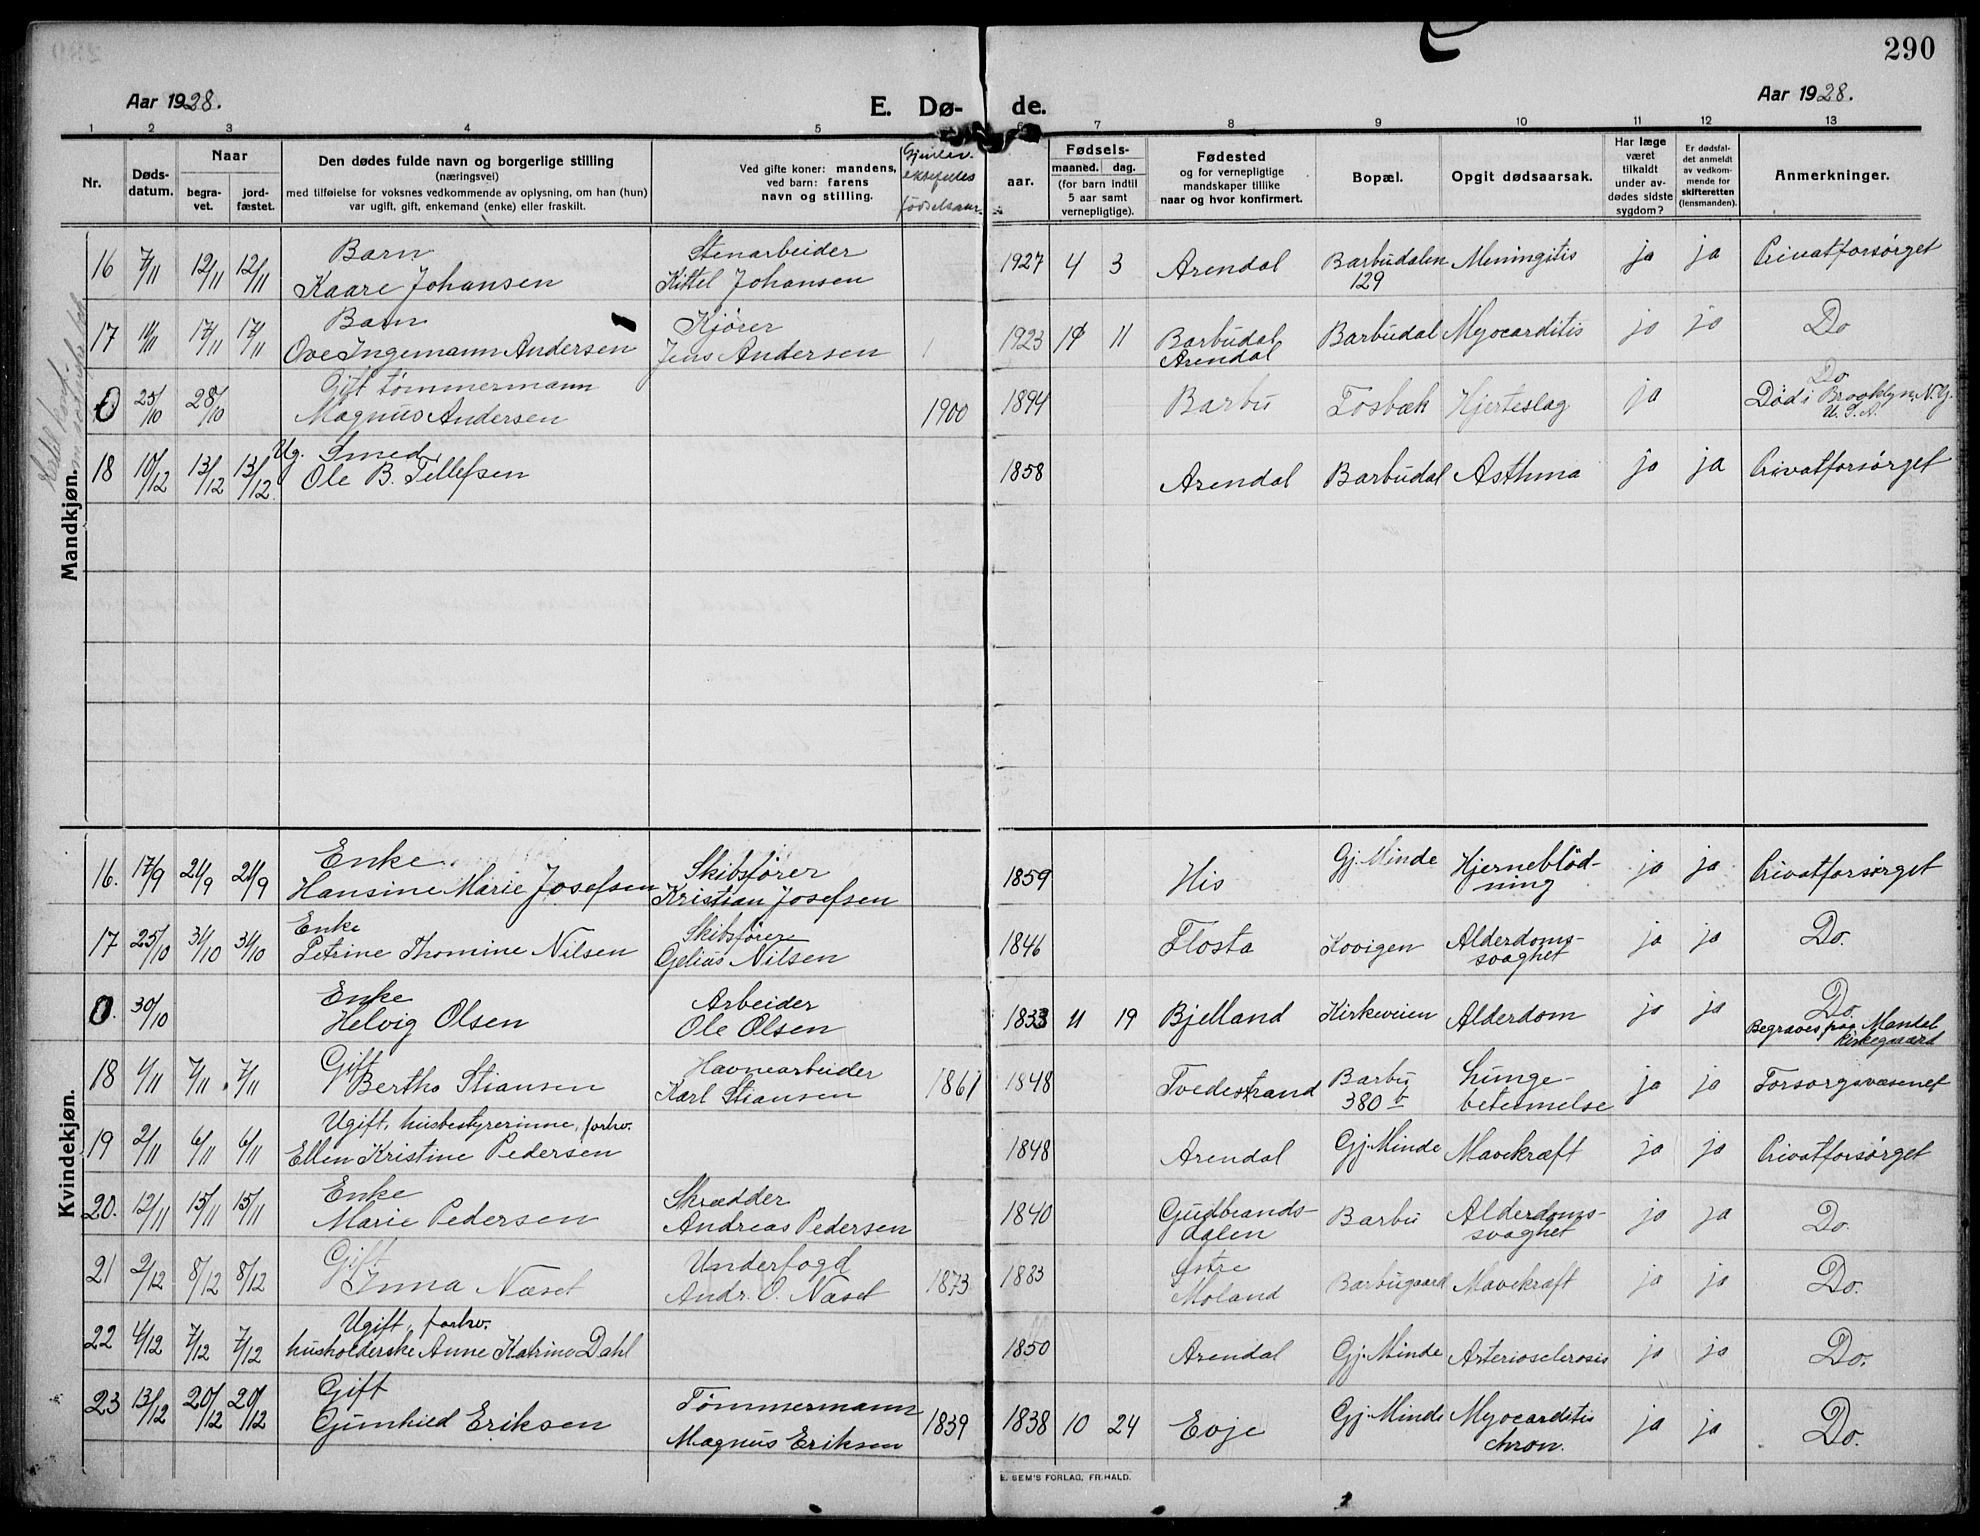 290
Aar 1928.
E. Dø-
de.
Aar 1928.
1 2 3 4 5 6 7 8 9 10 11 12 13
Nr.
Døds-
datum.
Naar
begra-
vet.
jord-
fæstet.
Den dødes fulde navn og borgerlige stilling
(næringsvei)
med tilføielse for voksnes vedkommende av oplysning, om han (hun)
var ugift, gift, enkemand (enke) eller fraskilt.
Ved gifte koner: mandens,
ved barn: farens
navn og stilling.
Gjenlev.
ektefelles
fødselsaar.
Fødsels-
aar.
maaned. dag.
(for barn indtil
5 aar samt
vernepligtige).
Fødested
og for vernepligtige
mandskaper tillike
naar og hvor konfirmert.
Bopæl.
Opgit dødsaarsak.
Har læge
været
tilkaldt
under av-
dødes sidste
sygdom?
Er dødsfal-
det anmeldt
av vedkom-
mende for
skifteretten
(lensmanden).
Anmerkninger.
Mandkjøn.
16 7/11 12/11 12/11 Barn Stenarbeider
Kaare Johansen Kittel Johansen 1927 4 3 Arendal Barbudalen 129 Meningitis ja ja Privatforsørget
17 11/11 17/11 17/11 Barn Kjører
Ove Ingemann Andersen Jens Andersen 1923 11 Barbudal Arendal Barbudal Myocarditis ja ja Do
0 25/10 28/10 Gift tømmermann
Magnus Andersen 1900 1894 Barbu Fosbæk Hjerteslag ja Do
Død i Brooklyn, N.Y.
U.S.A.
18 10/12 13/12 13/12 Ug. Smed
Ole B. Tellefsen 1858 Arendal Barbudal Asthma ja ja Privatforsørget
Kvindekjøn.
16. 17/9 21/9 21/9 Enke Skibsfører
Hansine Marie Josefsen Kristian Josefsen 1859 His Gj. Minde Hjerneblöd-
ning ja ja Privatforsørget
17 25/10 31/10 31/10 Enke Skibsfører
Petrine Thomine Nilsen Gjelius Nilsen 1846 Flosta Kovigen Alderdoms-
svaghet ja ja Do.
0. 30/10 Enke Arbeider
Helvig Olsen Ole Olsen 1833 11 19 Bjelland Kirkeveien Alderdom ja ja Do.
Begraves paa Mandal
kirkegaard
18 4/11 7/11 7/11 Gift Havnearbeider
Bertha Stiansen Karl Stiansen 1861 1848 Tvedestrand Barbu
380 b Lunge-
betennelse ja ja Forsorgsvæsenet
19 2/11 6/11 6/11 Ugift, husbestyrerinne, forhv.
Ellen Kristine Pedersen 1848 Arendal Gj. Minde Mavekræft ja ja Privatforsørget
20. 12/11 15/11 15/11 Enke Skrædder
Marie Pedersen Andreas Pedersen 1840 Gudbrands-
dalen Barbu Alderdoms-
svaghet ja ja Do.
21 2/12 8/12 8/12 Gift Underfogd
Inna Næset Andr. O. Næset 1873 1883 Østre
Moland Barbugaard Mavekræft ja ja Do.
22 4/12 7/12 7/12 Ugift, forhv.
husholderske Anne Katrine Dahl 1850 Arendal Gj. Minde Arteriosclerosis ja ja Do.
23 13/12 20/12 20/12 Gift Tømmermann
Gunhild Eriksen Magnus Eriksen 1839 1838 10 24 Evje Gj. Minde Myocarditis
chron. ja ja Do.
E. SEM'S FORLAG, FR.HALD.